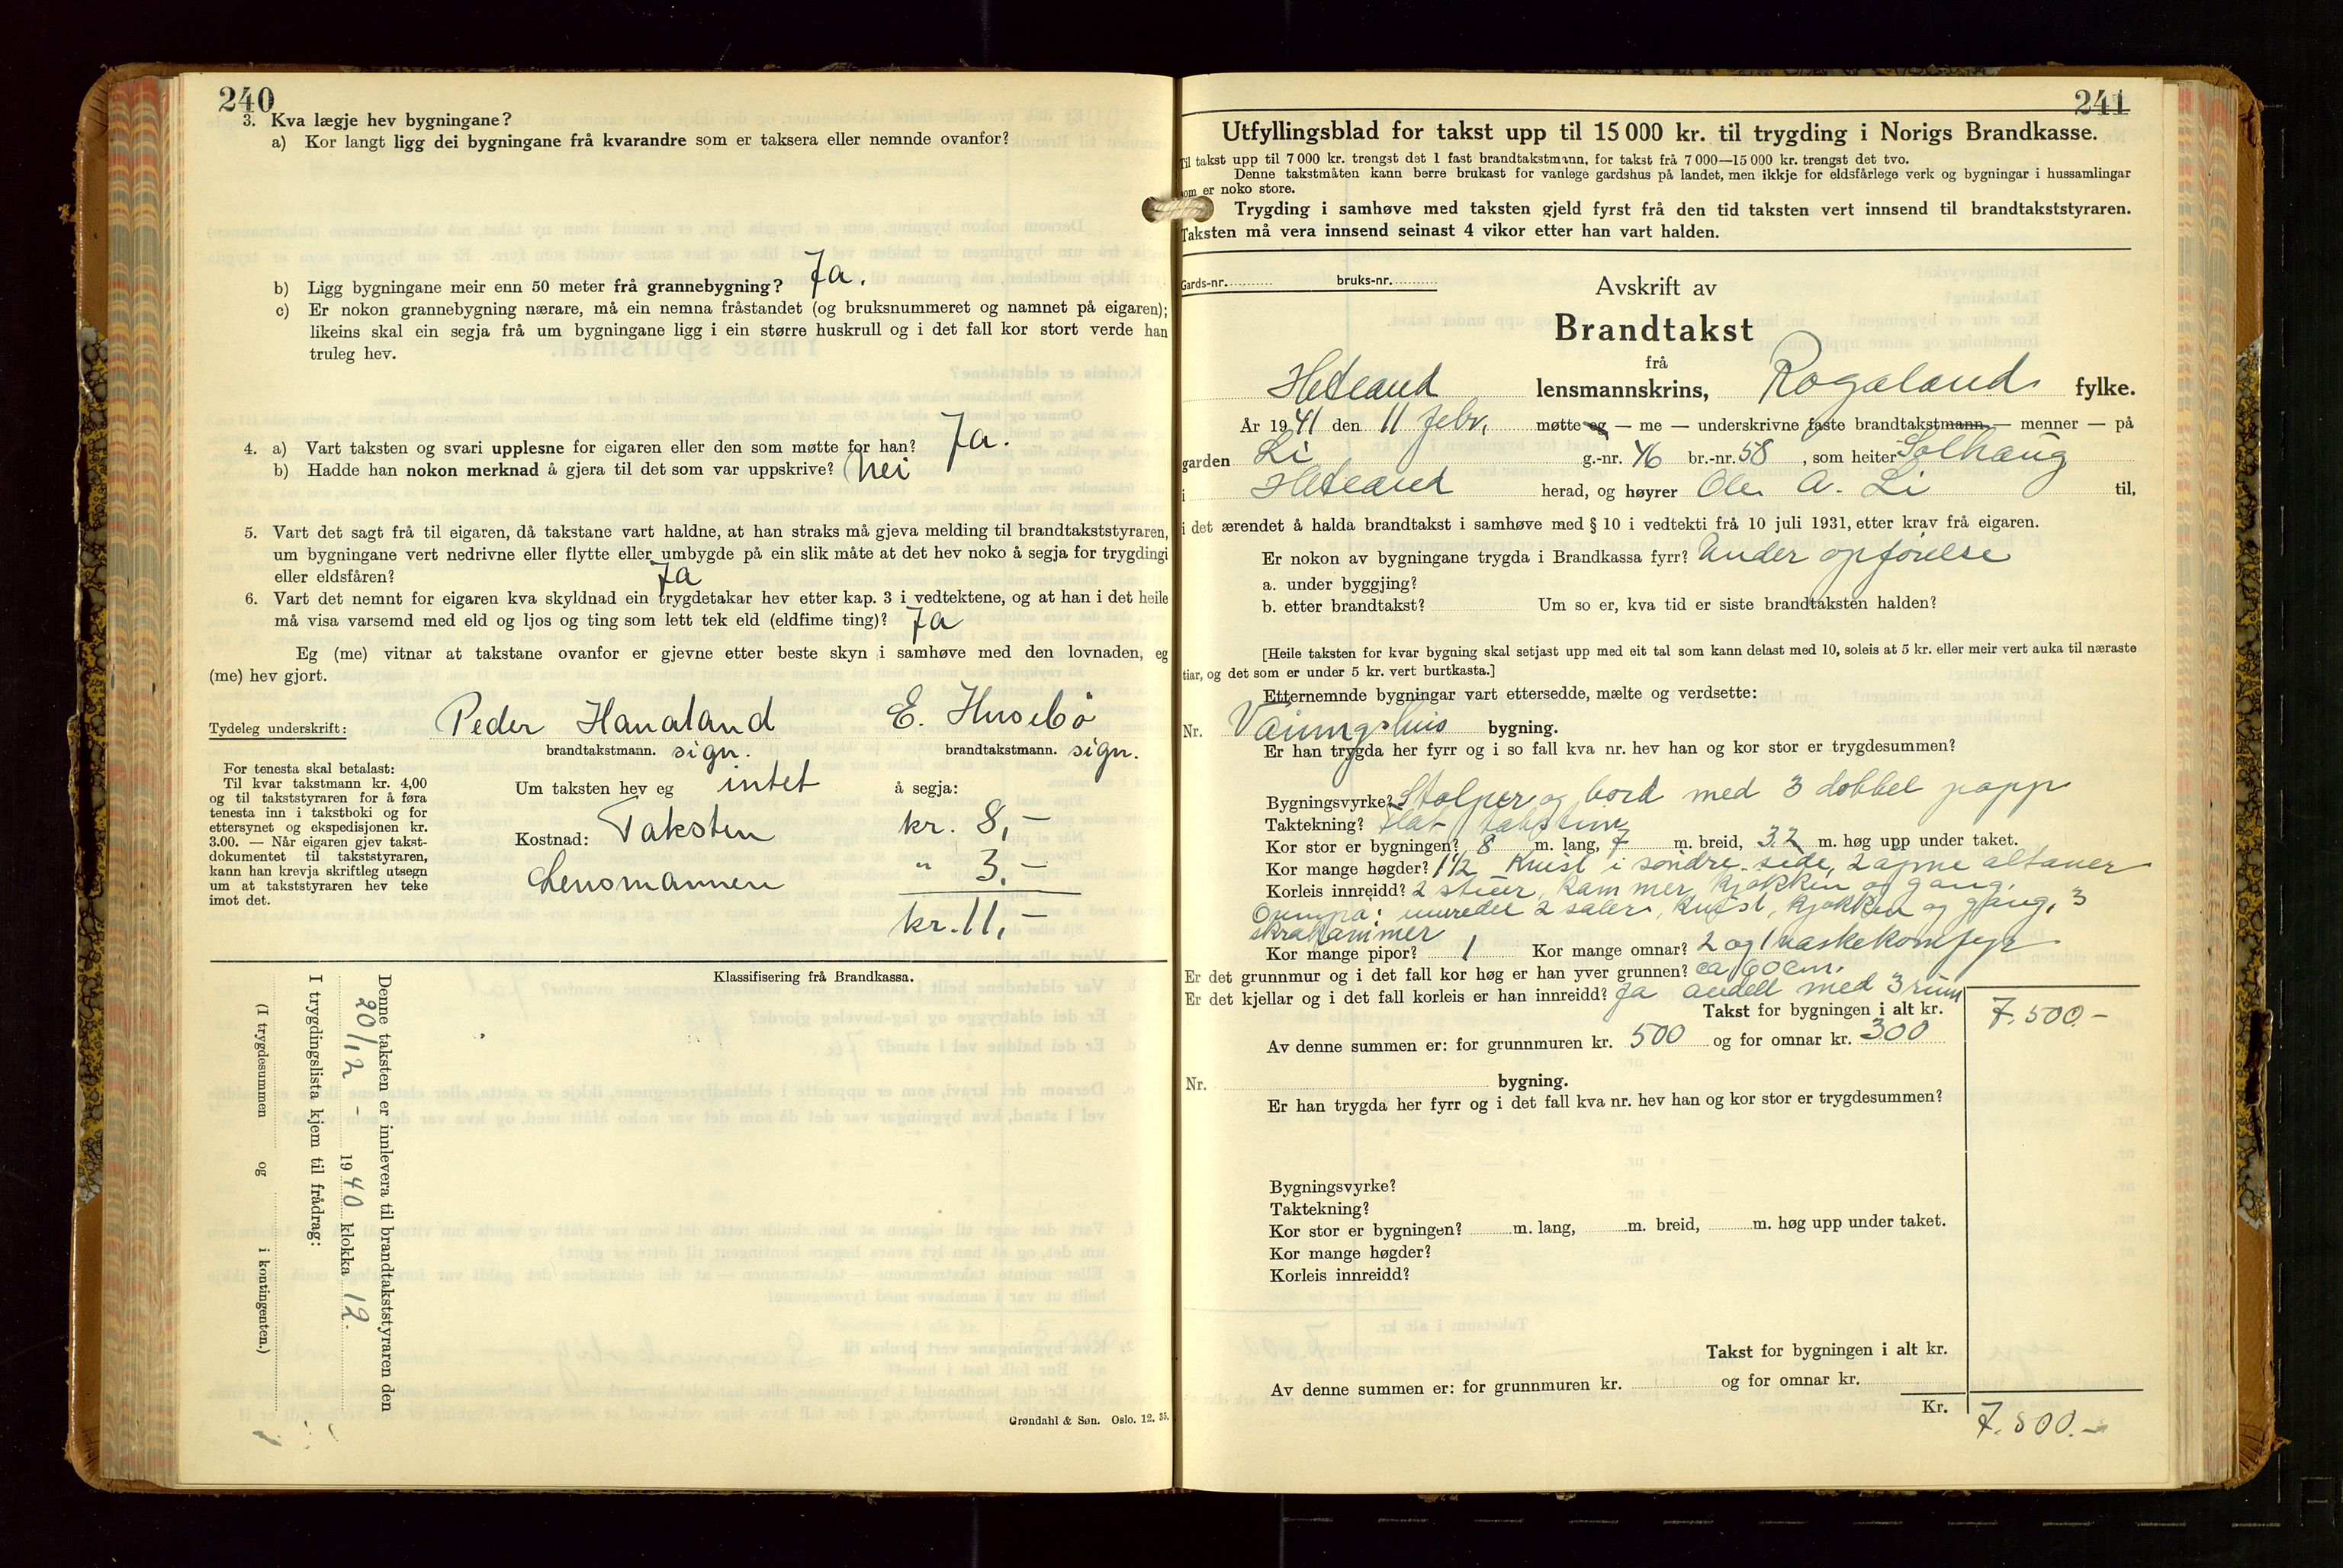 240
3. Kva lægje hev bygningane?
a) Kor langt ligg dei bygningane frå kvarandre som er taksera eller nemnde ovanfor?
b) Ligg bygningane meir enn 50 meter frå grannebygning? Ja.
c) Er nokon grannebygning nærare, må ein nemna fråstandet (og bruksnummeret og namnet på eigaren);
likeins skal ein segja frå um bygningane ligg i ein større huskrull og i det fall kor stort verde han
truleg hev.
4. a) Vart taksten og svari upplesne for eigaren eller den som møtte for han? Ja.
b) Hadde han nokon merknad å gjera til det som var uppskrive? nei
5. Vart det sagt frå til eigaren, då takstane vart haldne, at han straks må gjeva melding til brandtakststyraren,
um bygningane vert nedrivne eller flytte eller umbygde på ein slik måte at det hev noko å segja for trygdingi
eller eldsfåren? Ja
6. Vart det nemnt for eigaren kva skyldnad ein trygdetakar hev etter kap. 3 i vedtektene, og at han i det heile
må visa varsemd med eld og ljos og ting som lett tek eld (eldfime ting)? Ja
Eg (me) vitnar at takstane ovanfor er gjevne etter beste skyn i samhøve med den lovnaden, eg
(me) hev gjort.
Tydeleg underskrift: Peder Hanaland E. Husebö
brandtakstmann. sign. brandtakstmann. sign.
For tenesta skal betalast:
Til kvar takstmann kr. 4,00
og til takststyraren for å føra
tenesta inn i takstboki og for
ettersynet og ekspedisjonen kr.
3.00. — Når eigaren gjev takst-
dokumentet til takststyraren,
kann han krevja skriftleg utsegn
um at takststyraren hev teke
imot det.
Um taksten hev eg intet å segja:
Kostnad: Taksten kr. 8,-
Lensmannen " 3.-
kr. 11,-
Klassifisering frå Brandkassa.
Denne taksten er innlevera til brandtakststyraren den
20/12 - 1940 klokka 12.
I trygdingslista kjem til frådrag:
(I trygdesummen og i kontingenten.)
Grøndahl & Søn. Oslo. 12. 35.
241
Utfyllingsblad for takst upp til 15 000 kr. til trygding i Norigs Brandkasse.
Til takst upp til 7 000 kr. trengst det 1 fast brandtakstmann, for takst frå 7 000—15 000 kr. trengst det tvo.
Denne takstmåten kann berre brukast for vanlege gardshus på landet, men ikkje for eldsfårlege verk og bygningar i hussamlingar
som er noko store.
Trygding i samhøve med taksten gjeld fyrst frå den tid taksten vert innsend til brandtakststyraren.
Taksten må vera innsend seinast 4 vikor etter han vart halden.
Gards-nr. bruks-nr.
Avskrift av
Brandtakst
frå
Hetland lensmannskrins, Rogaland fylke.
År 1941 den 11 febr. møtte eg — me — underskrivne faste brandtakstmann — menner — på
garden Li g.-nr. 46 br.-nr. 58, som heiter Solhaug
i Hetland herad, og høyrer Ole A. Li til,
i det ærendet å halda brandtakst i samhøve med § 10 i vedtekti frå 10 juli 1931, etter krav frå eigaren.
Er nokon av bygningane trygda i Brandkassa fyrr? Under opförelse
a. under byggjing?
b. etter brandtakst? Um so er, kva tid er siste brandtaksten halden?
[Heile taksten for kvar bygning skal setjast upp med eit tal som kann delast med 10, soleis at 5 kr. eller meir vert auka til næraste
tiar, og det som er under 5 kr. vert burtkasta.]
Etternemnde bygningar vart ettersedde, mælte og verdsette:
Nr. Vaaningshus bygning.
Er han trygda her fyrr og i so fall kva nr. hev han og kor stor er trygdesummen?
Bygningsvyrke? Stolper og bord med 3 dobbel papp
Taktekning? flat takstein
Kor stor er bygningen? 8 m. lang, 7 m. breid, 3.2 m. høg upp under taket.
Kor mange høgder? 1½ Kvist i söndre side, 2 åpne altaner
Korleis innreidd? 2 stuer, kammer, kjøkken og gang.
Ovenpå: innredet 2 saler, kvist, kjøkken og gang, 3
skrakammer
Kor mange pipor? 1 Kor mange omnar? 2 og 1 vaskekomfyr
Er det grunnmur og i det fall kor høg er han yver grunnen? ca 60 cm.
Er det kjellar og i det fall korleis er han innreidd? Ja avdelt med 3 rum
Takst for bygningen i alt kr. 7.500.-
Av denne summen er: for grunnmuren kr. 500 og for omnar kr. 300
Nr. bygning.
Er han trygda her fyrr og i det fall kva nr. hev han og kor stor er trygdesummen?
Bygningsvyrke?
Taktekning?
Kor stor er bygningen? m. lang, m. breid, m. høg upp under taket.
Kor mange høgder?
Korleis innreidd?
Takst for bygningen i alt kr.
Av denne summen er: for grunnmuren kr. og for omnar kr.
Kr. 7.500.-